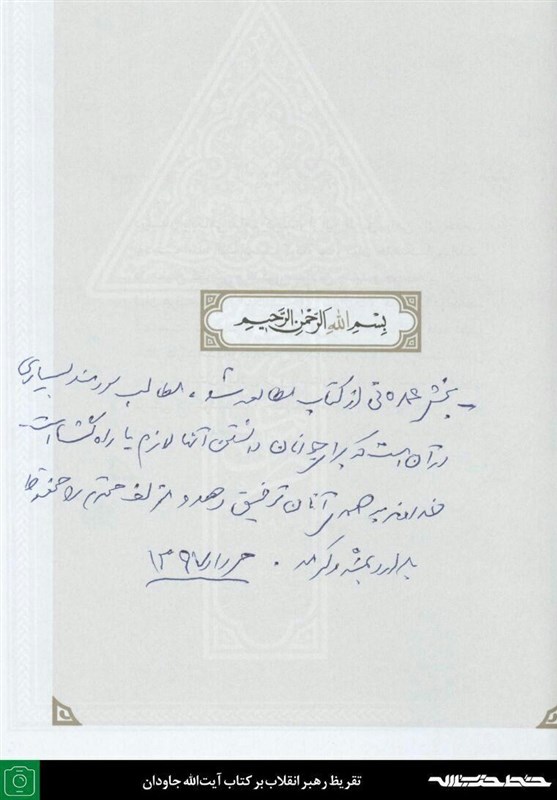 بِسْمِ اللهِ الرَّحْمٰنِ الرَّحیمِ
ـ بخش عمده‌ئی از کتاب مطالعه شد، مطالب سودمند بسیاری
در آن است که برای جوانان دانستن آنها لازم یا راه‌گشا است
خداوند به همه‌ی آنان توفیق دهد و مؤلف محترم را محفوظ
بدارد بمنّه و کرمه. مرداد ۱۳۹۷
تقریظ رهبر انقلاب بر کتاب آیت‌الله جاودان
خط حزب‌الله